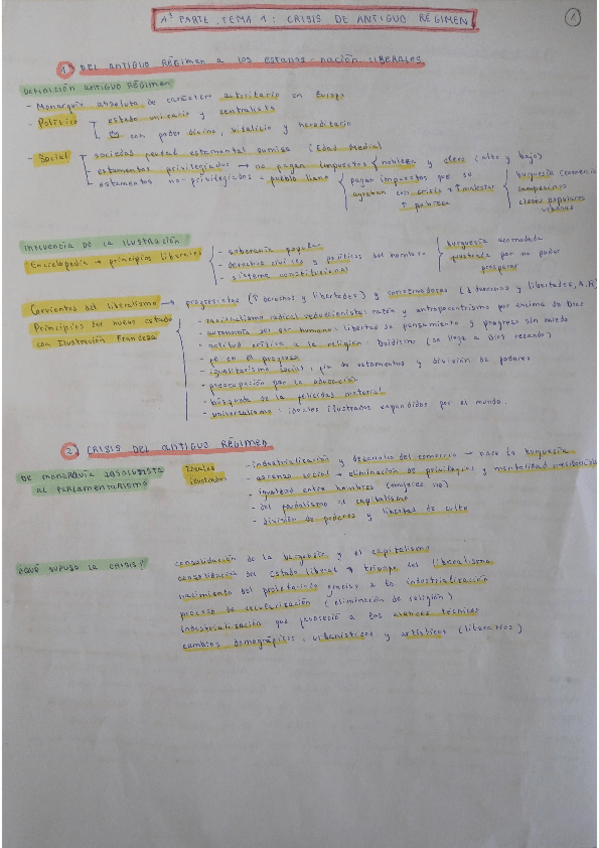 1ª PARTE. TEMA 1: CRISIS DE ANTIGUO RÉGIMEN
1
1) DEL ANTIGUO RÉGIMEN A LOS ESTADOS-NACIÓN LIBERALES
DEFINICIÓN ANTIGUO RÉGIMEN
- Monarquía absoluta de carácter autoritario en Europa
- Político
- estado unitario y centralista
- con poder divino, vitalicio y hereditario
- Social
- sociedad feudal estamental sumisa (Edad Media)
- estamentos privilegiados → no pagan impuestos
nobleza y clero (alto y bajo)
- estamentos no-privilegiados = pueblo llano
pagan impuestos que se
agravan con crisis → ↑ malestar
↑ pobreza
burguesía
campesinos
clases populares
urbanas
INFLUENCIA DE LA ILUSTRACIÓN
Enciclopedia → principios liberales
- soberanía popular
- derechos civiles y políticos del hombre
- sistema constitucional
burguesía acomodada
frustrada por no poder
prosperar
Corrientes del liberalismo → progresistas (↑ derechos y libertades) y conservadores (↓ derechos y libertades, A.R)
Principios del nuevo estado
con Ilustración Francesa
- racionalismo radical, reduccionista: razón y antropocentrismo por encima de Dios
- autonomía del ser humano: libertad de pensamiento y progreso sin miedo
- actitud crítica a la religión: Deísmo (se llega a Dios rezando)
- fe en el progreso
- igualitarismo social, fin de estamentos y división de poderes
- preocupación por la educación
- búsqueda de la felicidad material
- universalismo: ideales ilustrados expandidos por el mundo.
2) CRISIS DEL ANTIGUO RÉGIMEN
DE MONARQUÍA ABSOLUTISTA
AL PARLAMENTARISMO
Ideales
ilustrados
- industrialización y desarrollo del comercio → nace la burguesía
- ascenso social → eliminación de privilegios y mentalidad
- igualdad entre hombres (mujeres no)
- del feudalismo al capitalismo
- división de poderes y libertad de culto
¿QUÉ SUPUSO LA CRISIS?
consolidación de la burguesía y el capitalismo
consolidación del Estado liberal y triunfo del liberalismo
nacimiento del proletariado gracias a la industrialización
proceso de secularización (eliminación de religión)
industrialización que favoreció a los avances técnicos
cambios demográficos, urbanísticos y artísticos (literarios)